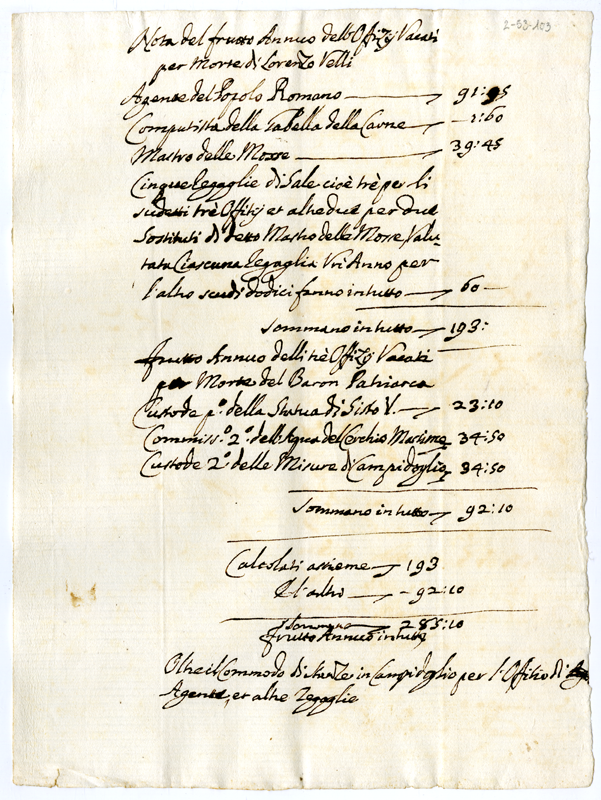 2-53-103
Nota del frutto Annuo dell'Offizij Vacati
per Morte di Lorenzo Velli
Agente del Popolo Romano — 91:95
Computista della Tabella della Carne — 1:60
Mastro delle Mosse — 39:45
Cinque Regaglie di Sale cioè trè per li
sudetti trè Offitij et altre due per due
Sostituti di detto Mastro delle Mosse, Valu-
tata Ciascuna Regaglia Un'Anno per
l'altro scudi dodici fanno in tutto — 60 —
Sommano in tutto — 193:
frutto Annuo delli trè Offizij Vacati
per Morte del Baron Patriarca
Custode p.º della Statua di Sisto V. — 23:10
Commiss.º 2.º dell'Aqua del Cerchio Massimo 34:50
Custode 2.º delle Misure di Campidoglio 34:50
Sommano in tutto — 92:10
Calcolati assieme — 193
E l'altro — 92:10
Sommano — 285:10
frutto Annuo in tutto
Oltre il Commodo di stanze in Campidoglio per l'Offitio di
Agente, et altre Regaglie